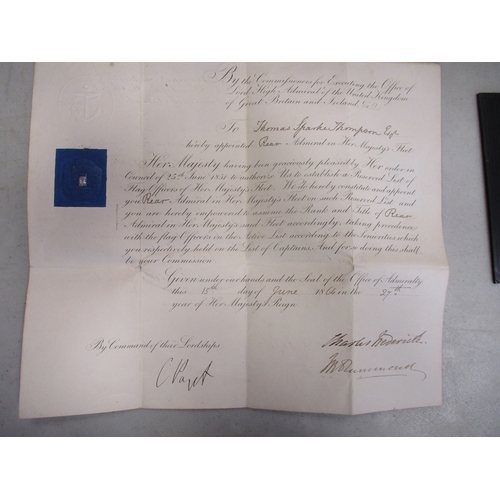 By the Commissioners for Executing the Office of
Lord High Admiral of the United Kingdom
of Great Britain and Ireland &c.
To Thomas Sparke Thompson Esqr
hereby appointed Rear Admiral in Her Majesty's Fleet
Her Majesty having been graciously pleased by Her order in
Council of 25th June 1851 to authorize Us to establish a Reserved List of
Flag Officers of Her Majesty's Fleet. We do hereby constitute and appoint
you Rear Admiral in Her Majesty's Fleet on such Reserved List and
you are hereby empowered to assume the Rank and Title of Rear
Admiral in Her Majesty's said Fleet accordingly Taking precedence
with the flag Officers on the Active List according to the Seniorities which
you respectively held on the List of Captains And for so doing this shall
be your Commission
Given under our hands and the Seal of the Office of Admiralty
this 15th day of June 1864 in the 27th
year of Her Majesty's Reign
By Command of their Lordships
Charles Frederick
C Paget
Drummond